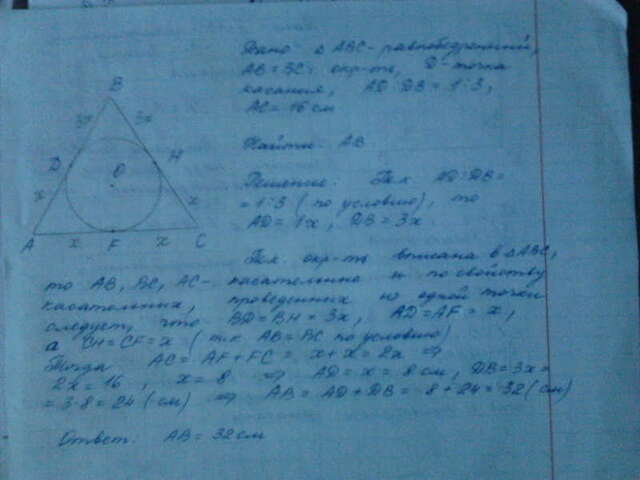 Дано: Δ ABC - равнобедренный,
AB = BC; окр-ть, D - точка
касания, AD : DB = 1 : 3,
AC = 16 см
Найти: AB
B
3x
3x
D
H
O
x
x
A
x
F
x
C
Решение: Т.к. AD : DB =
= 1 : 3 (по условию), то
AD = 1x, DB = 3x
Т.к. окр-ть вписана в ΔABC,
то AB, BC, AC - касательные и по свойству
касательных, проведенных из одной точки
следует, что BD = BH = 3x, AD = AF = x,
а CH = CF = x (т.к. AB = BC по условию)
Тогда AC = AF + FC = x + x = 2x ⇒
2x = 16, x = 8 ⇒ AD = x = 8 см, DB = 3x =
= 3·8 = 24 (см) ⇒ AB = AD + DB = 8 + 24 = 32 (см)
Ответ: AB = 32 см